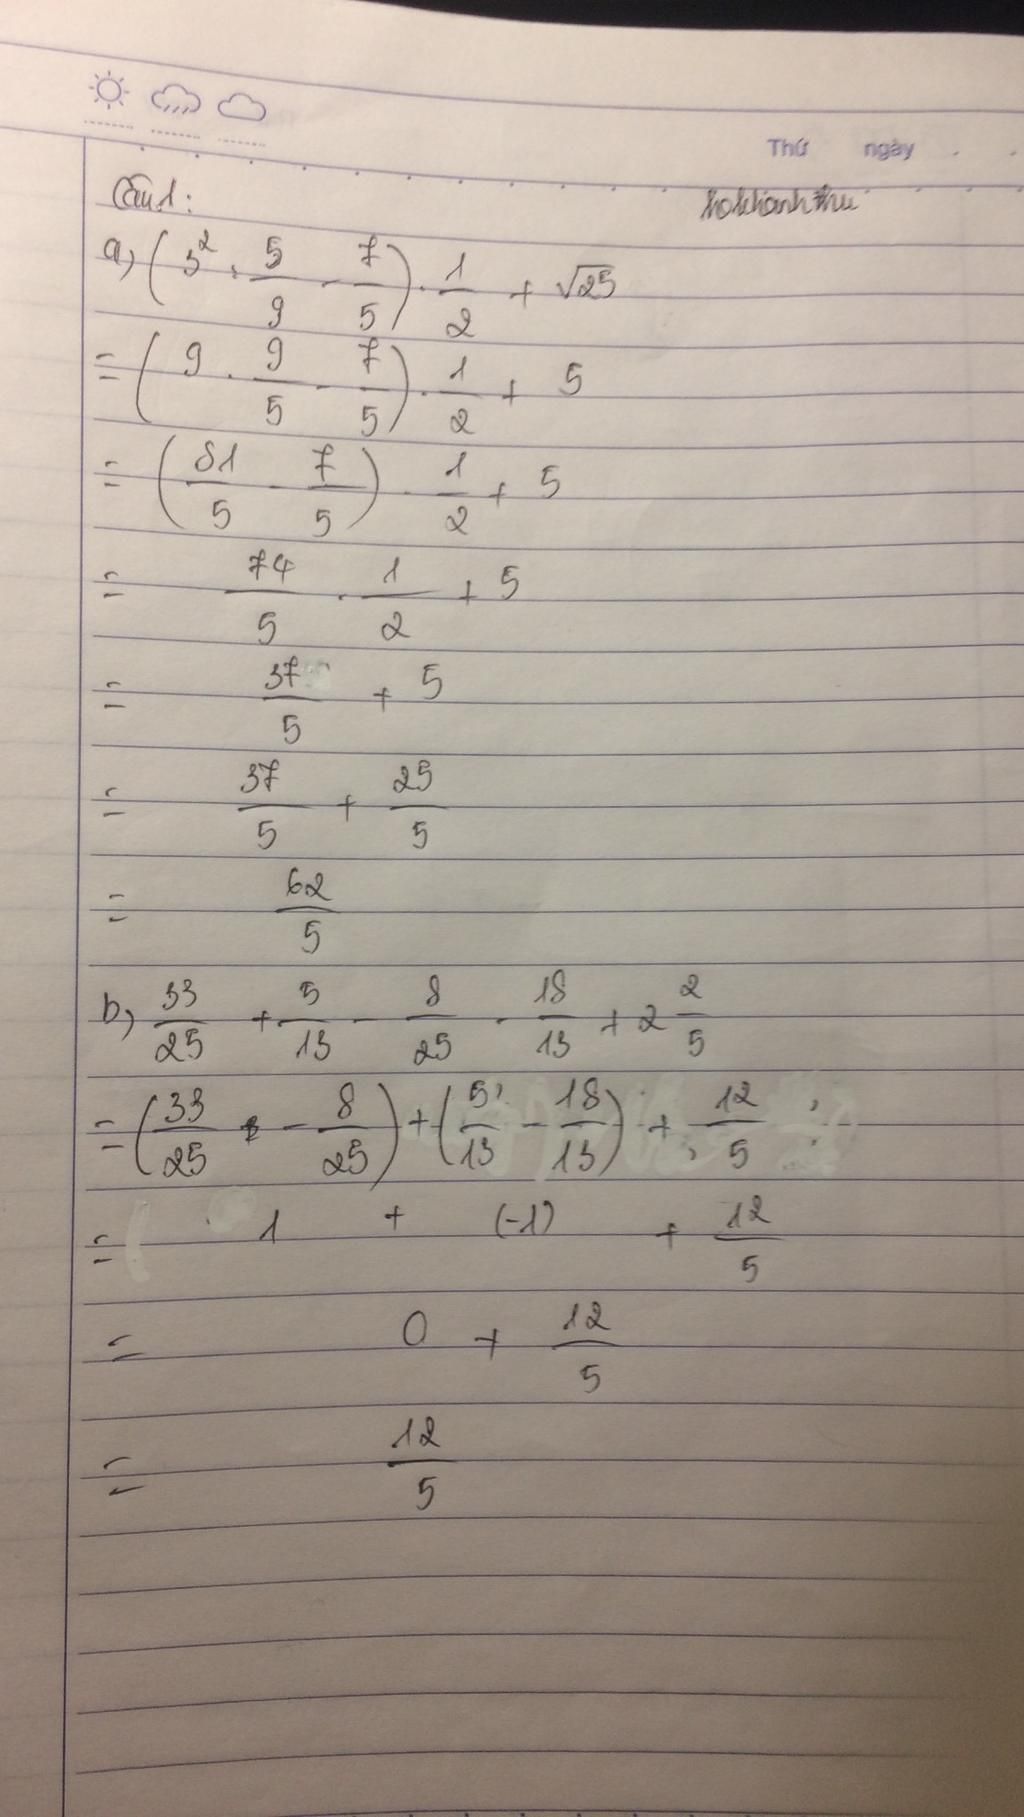 Thứ ngày
Câu 1:
a, (3² : 5/9 - 7/5) . 1/2 + √25
= (9 . 9/5 - 7/5) . 1/2 + 5
= (81/5 - 7/5) . 1/2 + 5
= 74/5 . 1/2 + 5
= 37/5 + 5
= 37/5 + 25/5
= 62/5
b, 33/25 + 5/13 - 8/25 - 18/13 + 2 2/5
= (33/25 - 8/25) + (5/13 - 18/13) + 12/5
= 1 + (-1) + 12/5
= 0 + 12/5
= 12/5